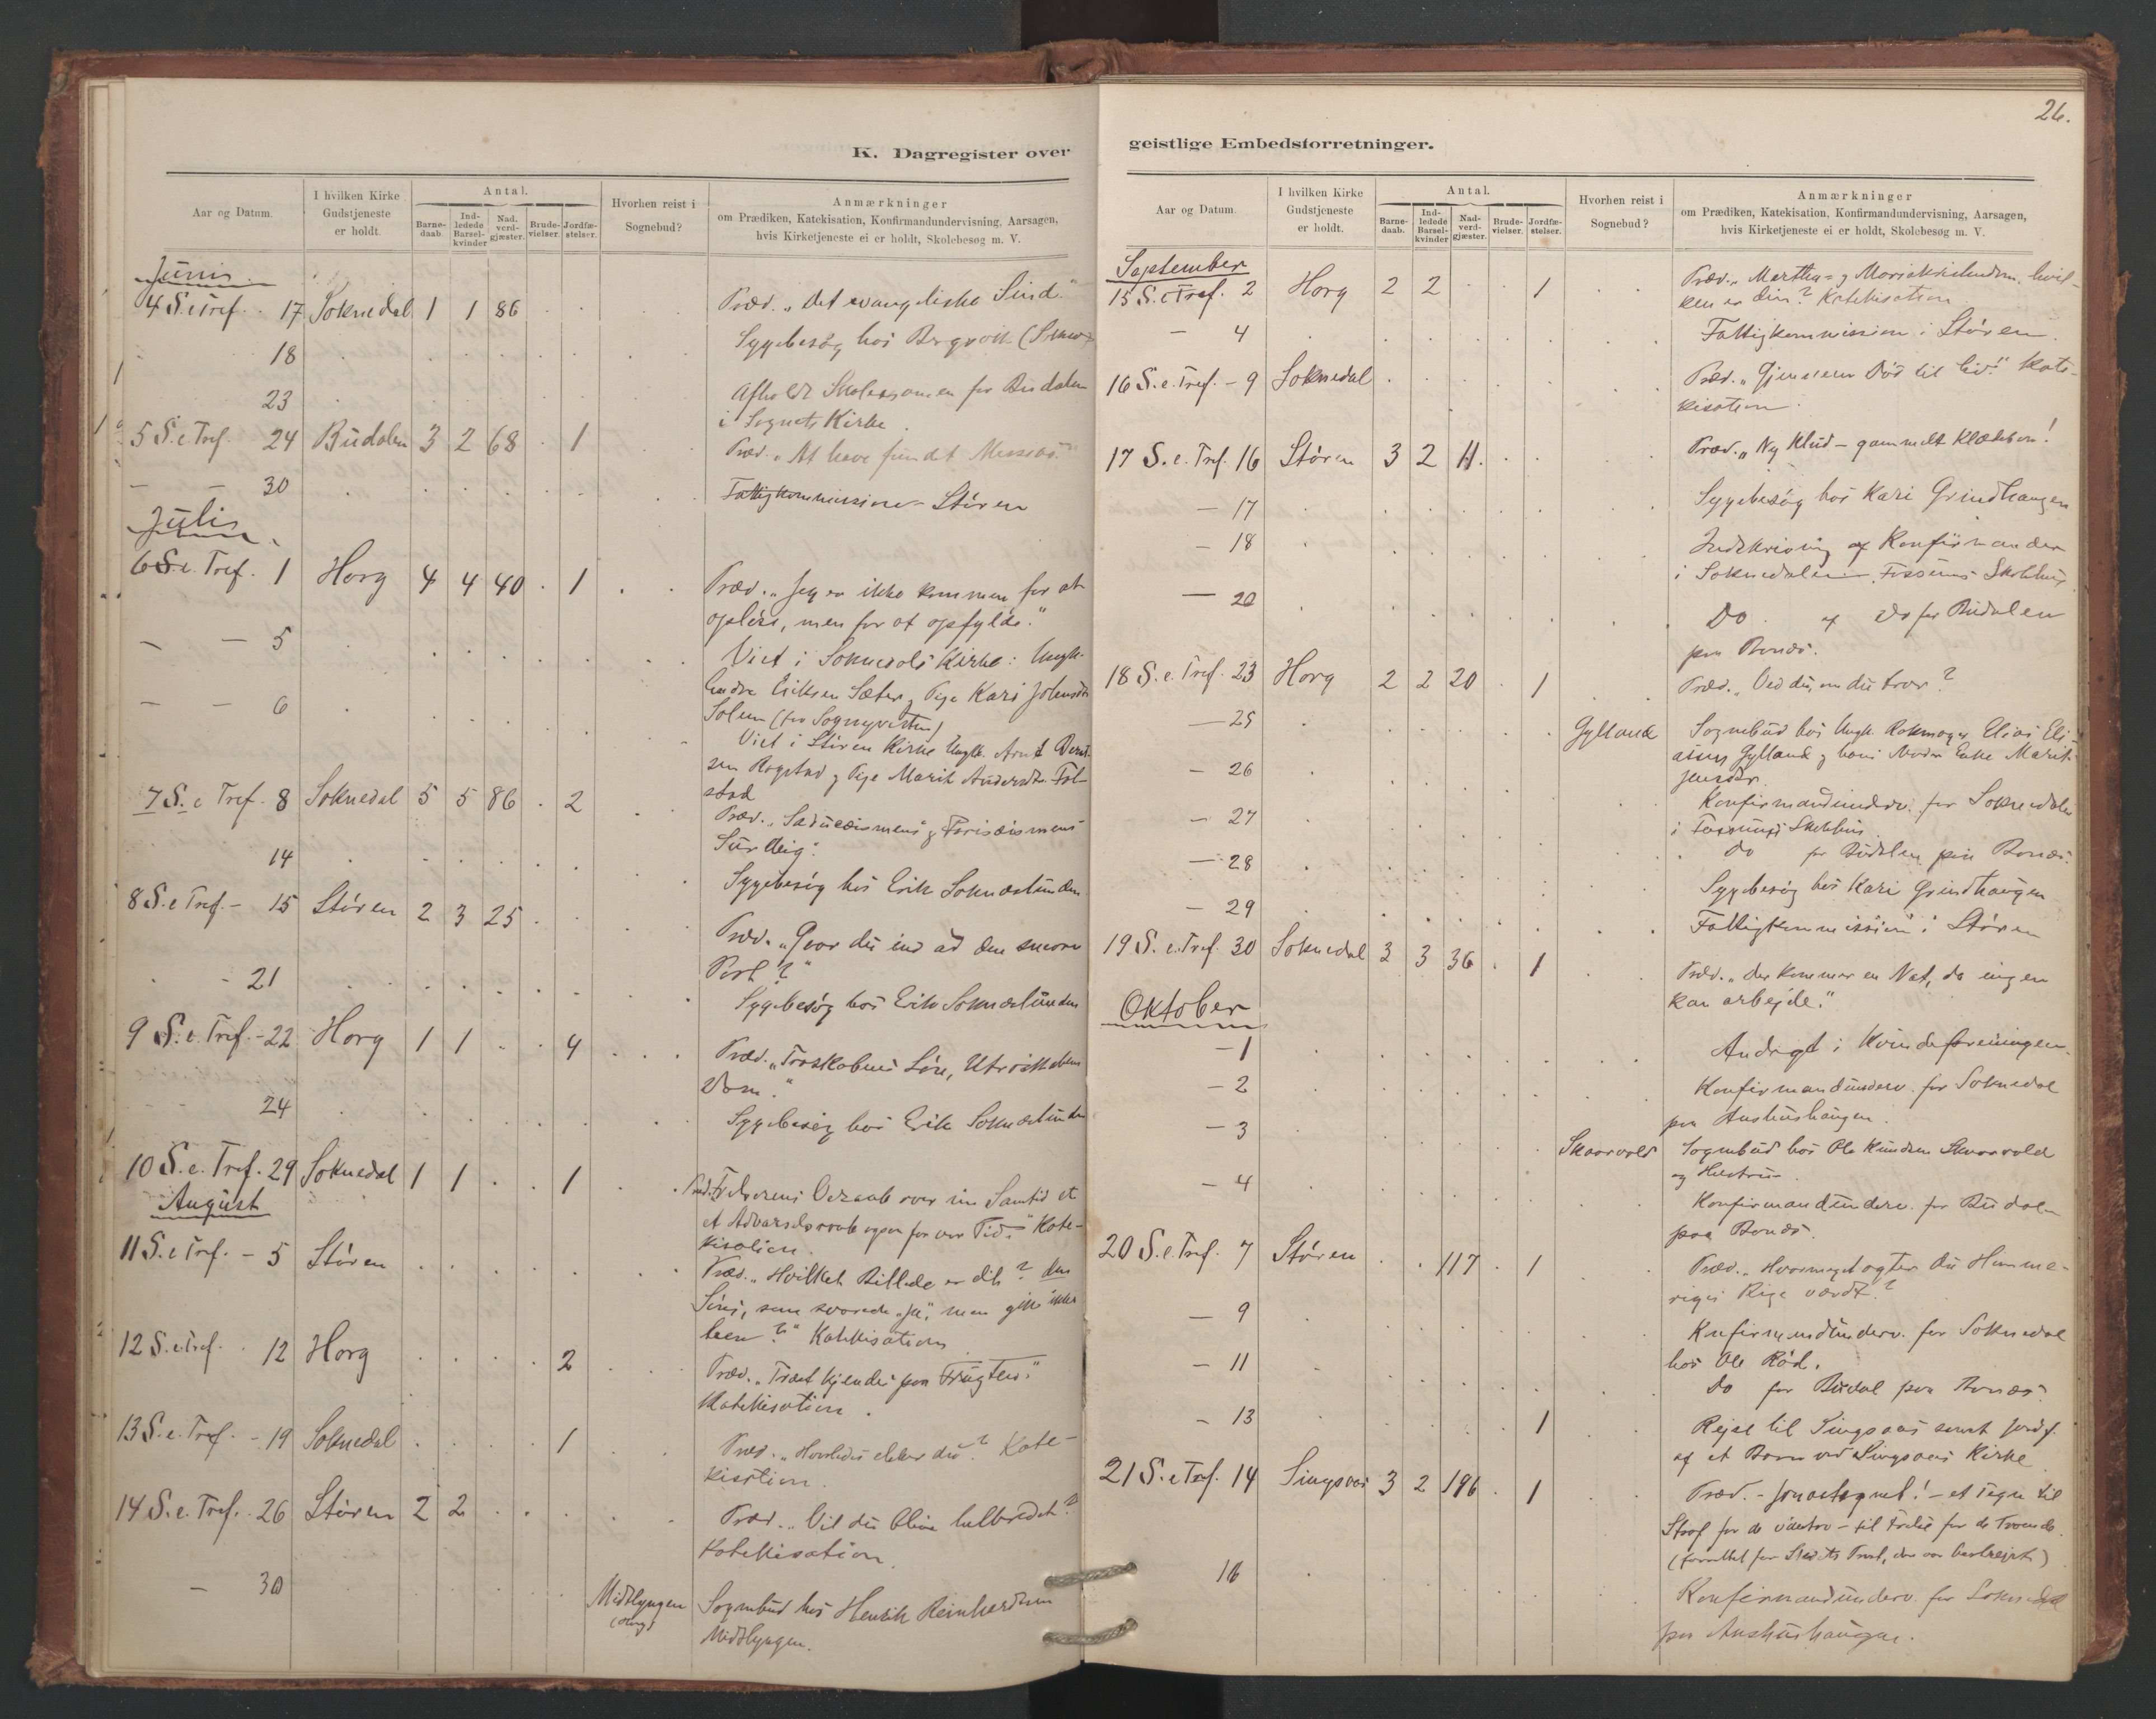 26.
K. Dagregister over
Aar og Datum.
I hvilken Kirke Gudstjeneste er holdt.
Antal.
Barne-daab.
Ind-ledede Barsel-kvinder
Nad. verd-gjæster.
Brude-vielser.
Jordfæ-stelser.
Hvorhen reist i Sognebud?
Anmærkninger
om Prædiken, Katekisation, Konfirmandundervisning, Aarsagen,
hvis Kirketjeneste ei er holdt, Skolebesøg m. V.
Juni
4 S. e Tref. 17 Soknedal 1 1 86 Præd. "Det evangeliske Sind."
18 Sygebesøg hos
23 Afholdt Skoleexamen for Budalen
i Sognets Kirke.
5 S. e Tref. 24 Budalen 3 2 68 1 Præd. "At have fundet Messias."
30 Fattigkommission - Støren
Juli
6 S. e. Tref. 1 Horg 4 4 40 1 Præd. "Jeg er ikke kommen for at
opløse, men for at opfylde."
5 Viet i Soknedals Kirke: Ungk.
Eriksen Sæter og Pige Kari Johnsdtr
6 Solem
Viet i Støren Kirke Ungk. Arnt
Rogstad og Pige Marit Andersdtr. Fol-
stad
7 S. e Tref. 8 Soknedal 5 5 86 2 Præd. "Saducæismens og Farisæismens
Surdeig."
14 Sygebesøg hos Erik Soknæslunden
8 S. e Tref. 15 Støren 2 3 25 Præd. "Gaar du ind ad den snevre
Port?"
21 Sygebesøg hos Erik Soknæslunden
9 S. e. Tref. 22 Horg 1 1 4 Præd. "Troskabens Løn, Utroskabens
Dom."
24 Sygebesøg hos Erik Soknæslunden
10 S. e. Tref. 29 Soknedal 1 1 1 Præd. Frelserens Veraab over sin Samtid et
et Advarselsraab ogsaa for vor Tid." Kate-
kisation.
August
11 S. e Tref. - 5 Støren Præd. "Hvilket Billede er dit? den
Søns, som svarede "Ja", men gik ikke
hen?" Katekisation
12 S. e Tref. 12 Horg 2 Præd. "Træet kjendes paa Frugten."
Katekisation.
13 S. e. Tref. - 19 Soknedal 1 Præd. "Hvorledes elsker du? Kate-
kisation.
14 S. e. Tref. 26 Støren 2 2 Præd. "Vil du blive helbredet?
Katekisation.
- 30 Midtlyngen
(Horg) Sognebud hos Henrik Reinhardsen
Midtlyngen.
geistlige Embedsforretninger.
Aar og Datum
I hvilken Kirke Gudstjeneste er holdt.
Antal.
Barne-daab.
Ind-ledede Barsel-kvinder
Nad-verd-gjæster.
Brude-vielser.
Jordfæ-stelser.
Hvorhen reist i Sognebud?
Anmærkninger
om Prædiken, Katekisation, Konfirmandundervisning, Aarsagen,
hvis Kirketjeneste ei er holdt, Skolebesøg m. V.
September
15 S. e Tref. 2 Horg 2 2 1 Præd. "Martha- og Mariakristendom, hvil-
ken er din? Katekisation
- 4 Fattigkommission i Støren.
16 S. e. Tref. - 9 Soknedal Præd. "Gjennem Død til Liv!" Kate-
kisation.
17 S. e. Tref. 16 Støren 3 2 11. Præd. "Ny Klud - gammelt Klædebon!
- 17 Sygebesøg hos Kari Grindhaugen
- 18 Indskrivning af Konfirmander
i Soknedalen Skolehus.
- 20 Do af Do for Budalen
paa Bonæs.
18 S. e. Tref. 23 Horg 2 2 20 1 Præd. "Ved du, om du tror?
- 25 Gylland Sognebud hos Ungk. Rokmager Elias Eli-
asen Gylland og hans Moder Enke Marit
Jensdtr.
- 26 Konfirmandunderv. for Soknedalen
i Skolehus.
- 27 Do for Budalen paa Bonæs.
- 28 Sygebesøg hos Kari Grindhaugen
- 29 Fattigkommission i Støren
19 S. e. Tref. 30 Soknedal 3 3 36 1 Præd. "der kommer en Nat, da ingen
kan arbejde."
Oktober
- 1 Andagt i Kvindeforeningen.
- 2 Konfirmandunderv. for Soknedal
paa Anshushaugen.
- 3 Skaarvold Sognebud hos Ole Knudsen Skaarvold
og Hustru.
- 4 Konfirmandunderv. for Budalen
paa Bonæs.
20 S. e. Tref. 7 Støren 117 1 Præd. "Hvormeget agter du Himme-
riges Rige værdt?
- 9 Konfirmandunderv. for Soknedal
hos Ole Rød.
- 11 Do for Budal paa Bonæs.
- 13 1 Rejse til Singsaas samt Jordf.
af et Barn ved Singsaas Kirke
21 S. e Tref. 14 Singsaas 3 2 196 1 Præd. - Jonastegnet! - et Tegn til
Straf for de vantro - til Frelse for de Troende.
(forrettet for Stedets Præst, der var bortrejst)
16 Konfirmandunderv. for Soknedal
paa Anshushaugen.